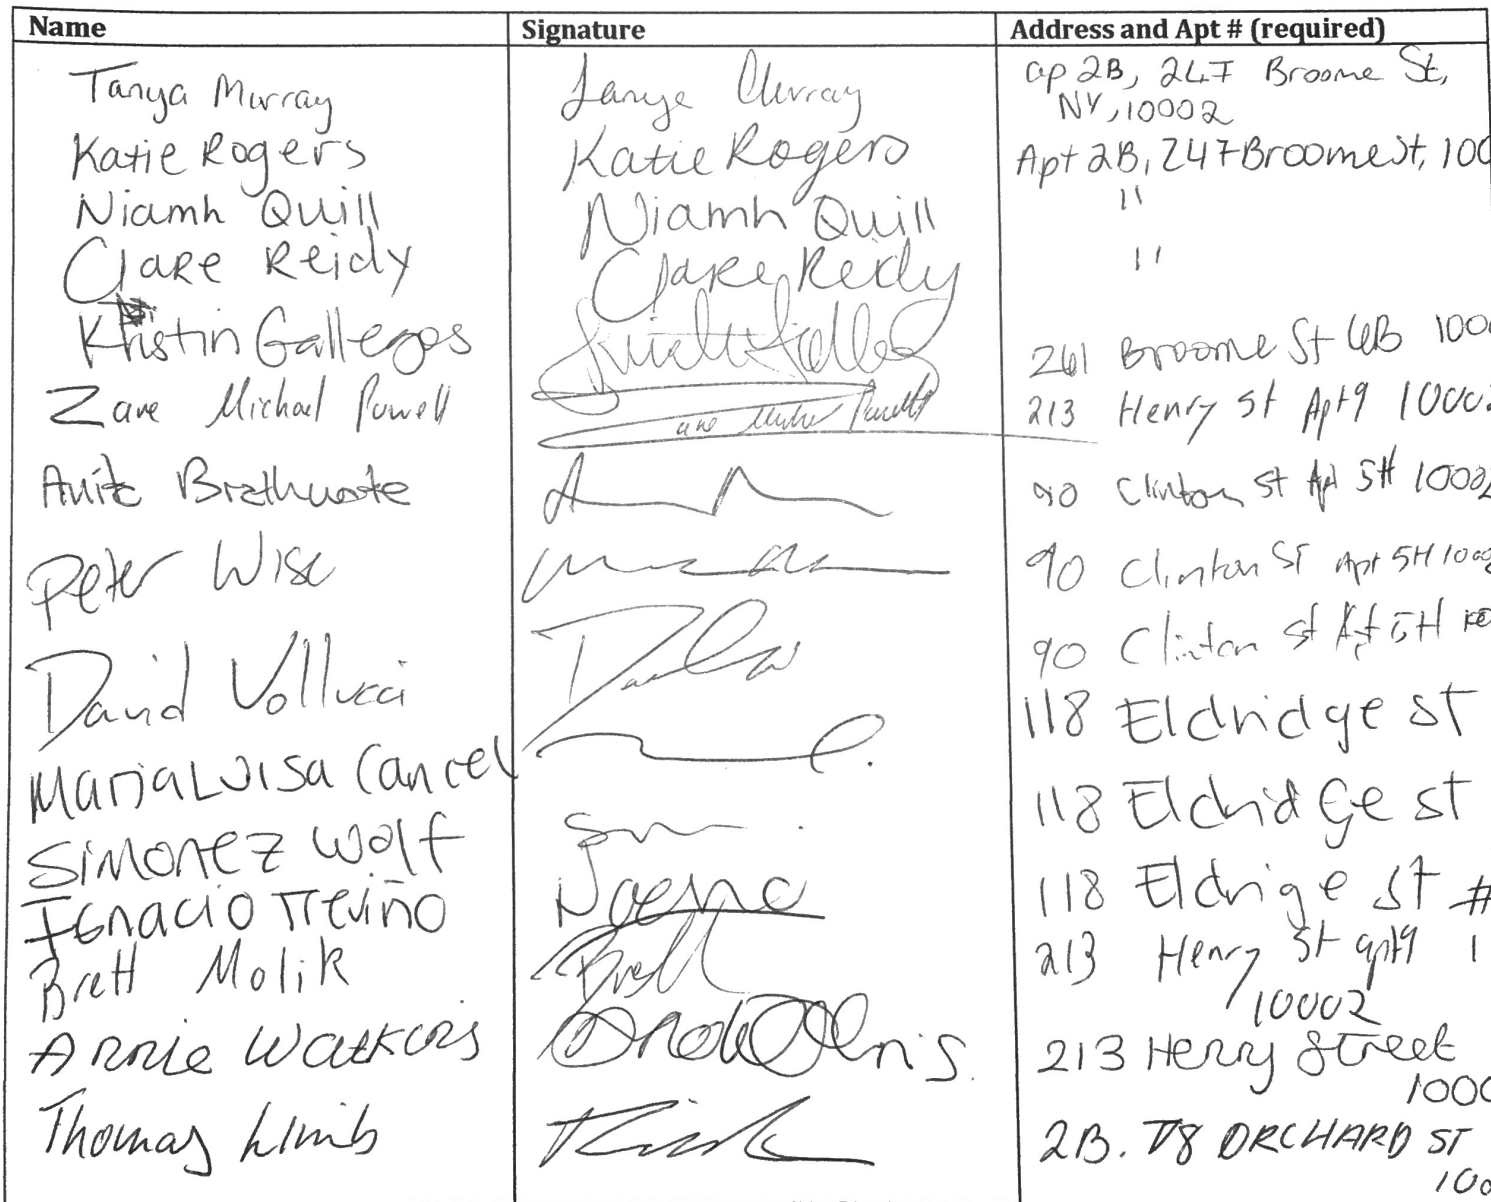 Name Signature Address and Apt # (required)
Tanya Murray Tanya Murray ap 2B, 247 Broome St,
NY, 10002
Katie Rogers Katie Rogers Apt 2B, 247 Broome St, 100
Niamh Quill Niamh Quill "
Clare Reidy Clare Reidy "
Kristin Gallegos 261 Broome St 6B 100
Zane Michael Powell Zane Michael Powell 213 Henry St Apt 9 10002
Anita Brathwaite 90 Clinton St Apt 5H 10002
Peter Wise 90 Clinton St Apt 5H 1000
David Vollucci 90 Clinton St Apt 5H
118 Eldridge St
Maria Luisa Cancel
118 Eldridge St
Simonez Wolf
Ignacio Treviño 118 Eldrige St #
Brett Molik Brett 213 Henry St apt 9 1
10002
Annie Watkins 213 Henry Street
1000
Thomas 2B. 78 ORCHARD ST
100